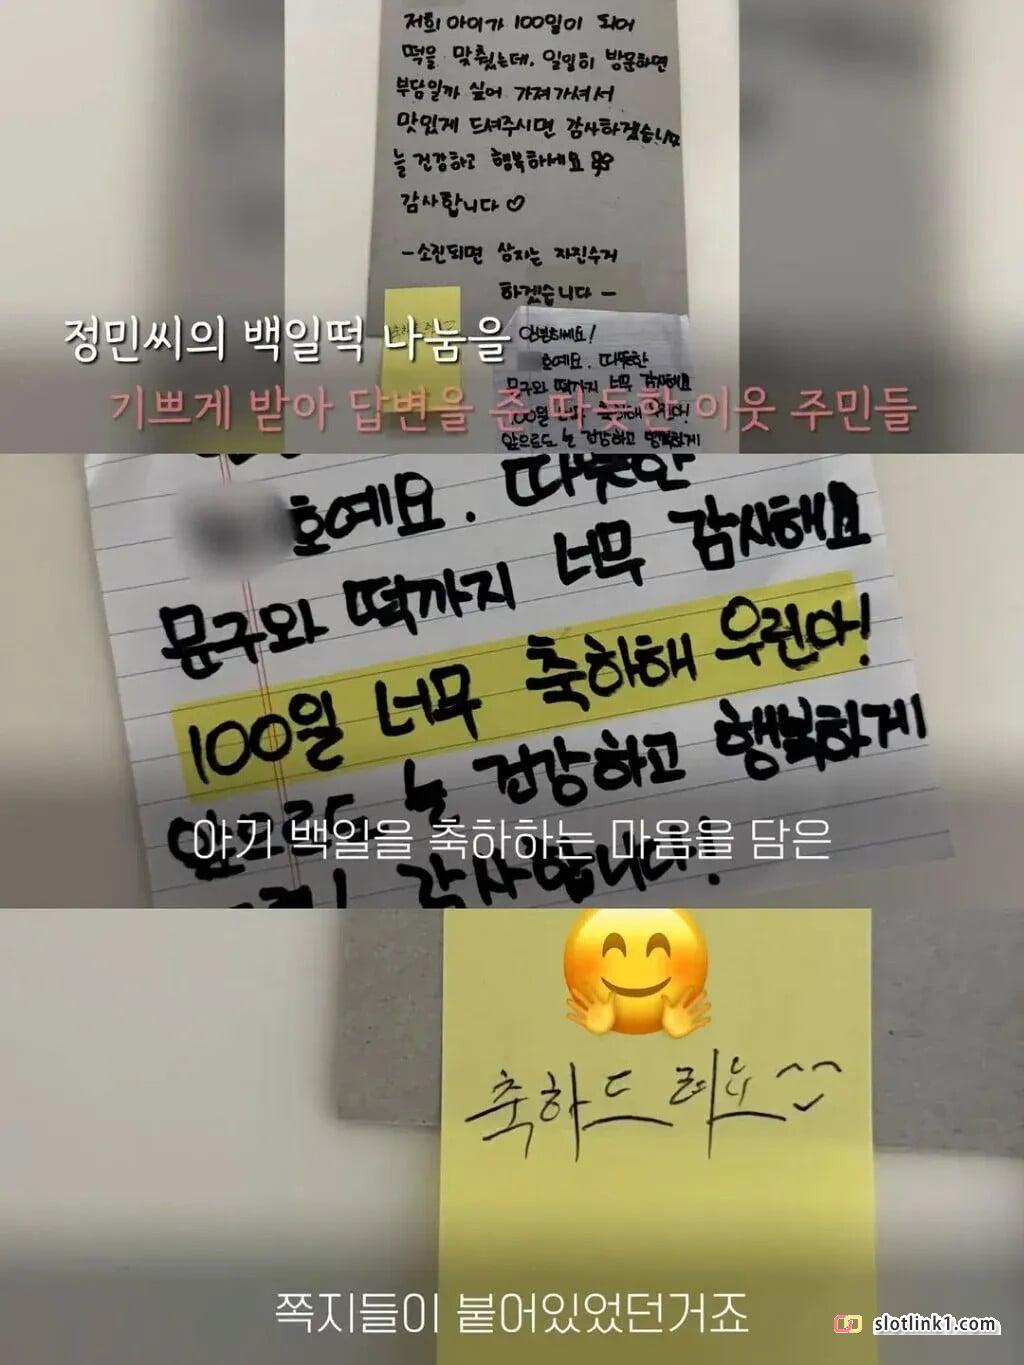 저희 아이가 100일이 되어
떡을 맞췄는데, 일일히 방문하면
부담일까 싶어 가져가셔서
맛있게 드셔주시면 감사하겠습니다
늘 건강하고 행복하세요
감사합니다♡
-소진되면 상자는 자진수거
하겠습니다-
안녕하세요!
호예요. 따뜻한
문구와 떡까지 너무 감사해요
100일 너무 축하해 우린아!
앞으로도 늘 건강하고 행복하게
정민씨의 백일떡 나눔을
기쁘게 받아 답변을 준 따듯한 이웃 주민들
호예요. 따뜻한
문구와 떡까지 너무 감사해요
100일 너무 축하해 우린아!
앞으로도 늘 건강하고 행복하게
감사합니다!
아기 백일을 축하하는 마음을 담은
축하드려요^^
쪽지들이 붙어있었던거죠
slotlink1.com